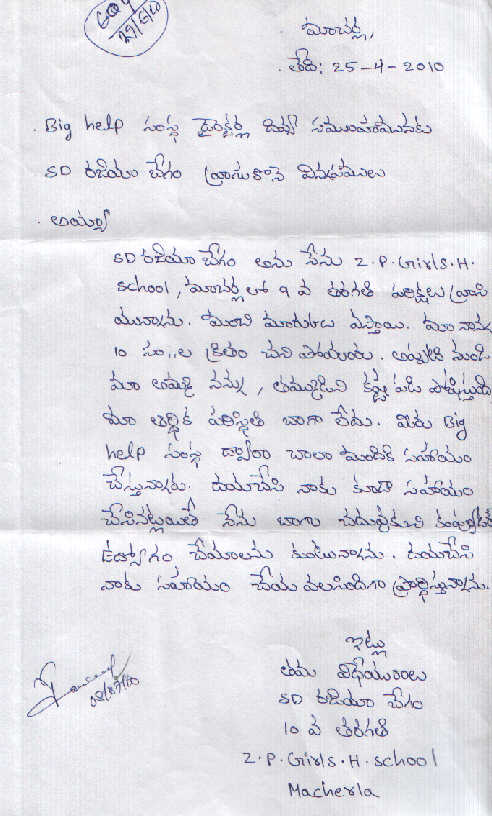 మాచర్ల,
తేది: 25-4-2010
Big help సంస్థ డైరెక్టర్ల దివ్య సముఖమునకు
SD రజియా బేగం వ్రాసుకొనే విన్నపములు
అయ్యా
SD రజియా బేగం అను నేను Z.P.Girls.H.
school, మాచర్లలో 9 వ తరగతి పరీక్షలు వ్రాసి
యున్నాను. మంచి మార్కులు వస్తాయి. మా నాన్న
10 సం,,ల క్రితం చని పోయారు. అప్పటి నుండి
మా అమ్మ నన్ను, తమ్ముడిని కష్ట పడి పోషిస్తుంది
మా ఆర్థిక పరిస్థితి బాగా లేదు. మీరు Big
help సంస్థ ద్వారా చాలా మందికి సహాయం
చేస్తున్నారు. దయచేసి నాకు కూడా సహాయం
చేసినట్లయితే నేను బాగా చదువుకుని కంప్యూటర్
ఉద్యోగం చేయాలను కుంటున్నాను. దయచేసి
నాకు సహాయం చేయ వలసిందిగా ప్రార్థిస్తున్నాను.
ఇట్లు
తమ విధేయురాలు
SD రజియా బేగం
10 వ తరగతి
Z.P.Girls.H.school
Macherla